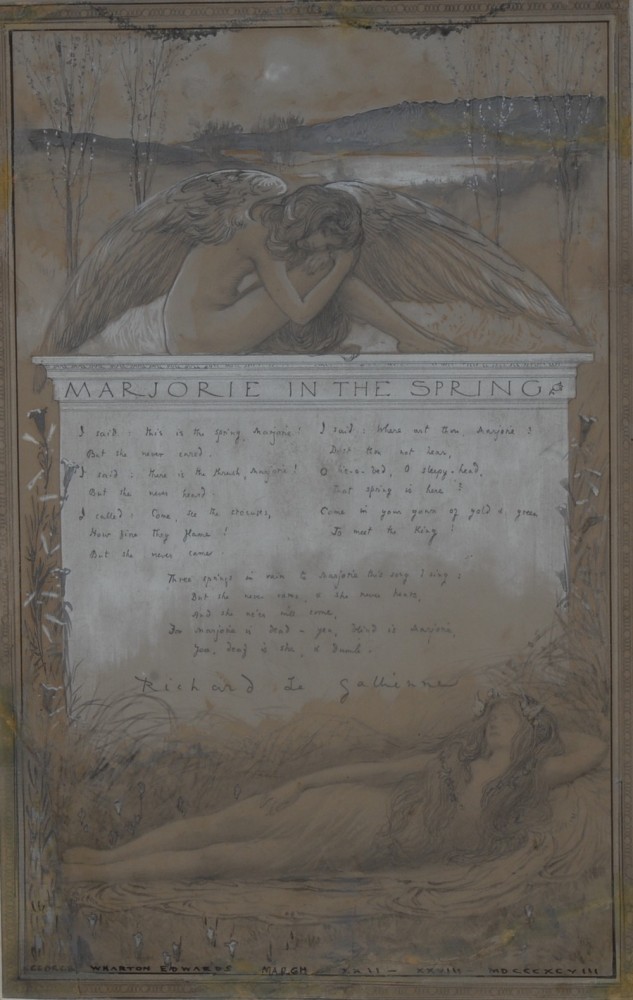 MARJORIE IN THE SPRING
I said : this is the spring, Marjorie!
But she never cared.
I said : there is the thrush, Marjorie!
But she never heard
I called : Come, see the crocuses,
How fine they flame !
But she never came.
I said : Where art thou, Marjorie ?
Dost thou not hear,
O lie-a-bed, O sleepy-head,
That spring is here ?
Come in your gown of gold & green
To meet the King !
Three springs in vain to Marjorie this song I sing ;
But she never comes, & she never hears,
And she never will come,
For Marjorie is dead - yea, blind is Marjorie,
Yea, deaf is she, & dumb.
Richard Le Gallienne
GEORGE WHARTON EDWARDS MARCH XXII — XXVIII MDCCCXCVIII